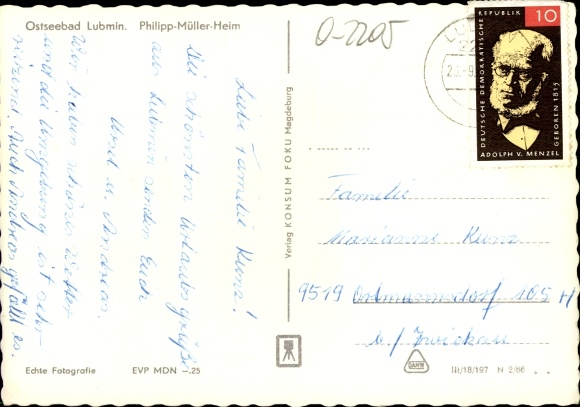 Ostseebad Lubmin. Philipp-Müller-Heim
Liebe Familie Kunz!
Die schönsten Urlaubsgrüße
aus Lubmin senden Euch
und u. Andreas.
Wir haben schönes Wetter
und die Umgebung ist sehr
Auch Andreas gefällt es.
Echte Fotografie EVP MDN –.25
Verlag KONSUM FOKU Magdeburg
0-2205
DEUTSCHE DEMOKRATISCHE REPUBLIK 10
GEBOREN 1815
ADOLPH V. MENZEL
Familie
Marianne Kunz
9519 Ortmannsdorf 105 H
b/ Zwickau
III/18/197 N 2/66